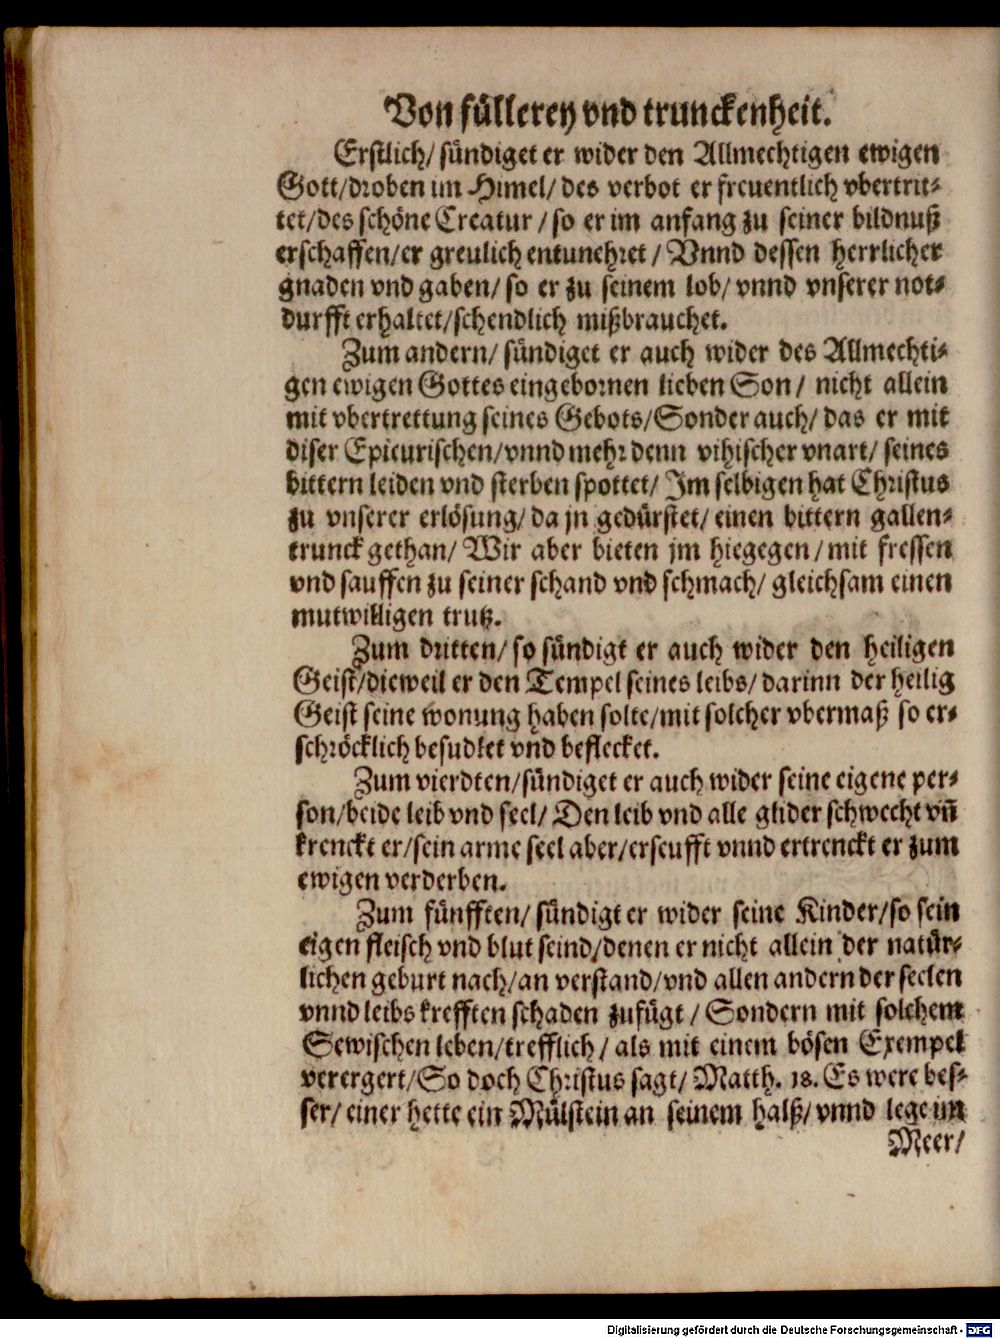 Von füllerey vnd trunckenheit.
Erstlich/ sündiget er wider den Allmechtigen ewigen
Gott/droben im Himel/ des verbot er freuentlich vbertrit-
tet/des schöne Creatur / so er im anfang zu seiner bildnuß
erschaffen/er greulich entunehret / Vnnd dessen herrlicher
gnaden vnd gaben/ so er zu seinem lob/ vnnd vnserer not-
durfft erhaltet/schendlich mißbrauchet.
Zum andern/ sündiget er auch wider des Allmechti-
gen ewigen Gottes eingebornen lieben Son/ nicht allein
mit vbertrettung seines Gebots/Sonder auch/ das er mit
diser Epicurischen/vnnd mehr denn vihischer vnart/ seines
bittern leiden vnd sterben spottet/ Im selbigen hat Christus
zu vnserer erlösung/ da jn gedürstet/ einen bittern gallen-
trunck gethan/ Wir aber bieten jm hiegegen/mit fressen
vnd sauffen zu seiner schand vnd schmach/ gleichsam einen
mutwilligen trutz.
Zum dritten/ so sündigt er auch wider den heiligen
Geist/dieweil er den Tempel seines leibs/darinn der heilig
Geist seine wonung haben solte/mit solcher vbermaß so er-
schröcklich besudlet vnd beflecket.
Zum vierdten/sündiget er auch wider seine eigene per-
son/beide leib vnd seel/ Den leib vnd alle glider schwecht vñ
krenckt er/sein arme seel aber/erseufft vnnd ertrenckt er zum
ewigen verderben.
Zum fünfften/ sündigt er wider seine Kinder/so sein
eigen fleisch vnd blut seind/denen er nicht allein der natür-
lichen geburt nach/an verstand/vnd allen andern der seelen
vnnd leibs krefften schaden zufügt / Sondern mit solchem
Sewischen leben/trefflich/ als mit einem bösen Exempel
verergert/So doch Christus sagt/ Matth. 18. Es were bes-
ser/ einer hette ein Mülstein an seinem halß/ vnnd lege im
Meer/
Digitalisierung gefördert durch die Deutsche Forschungsgemeinschaft - DFG